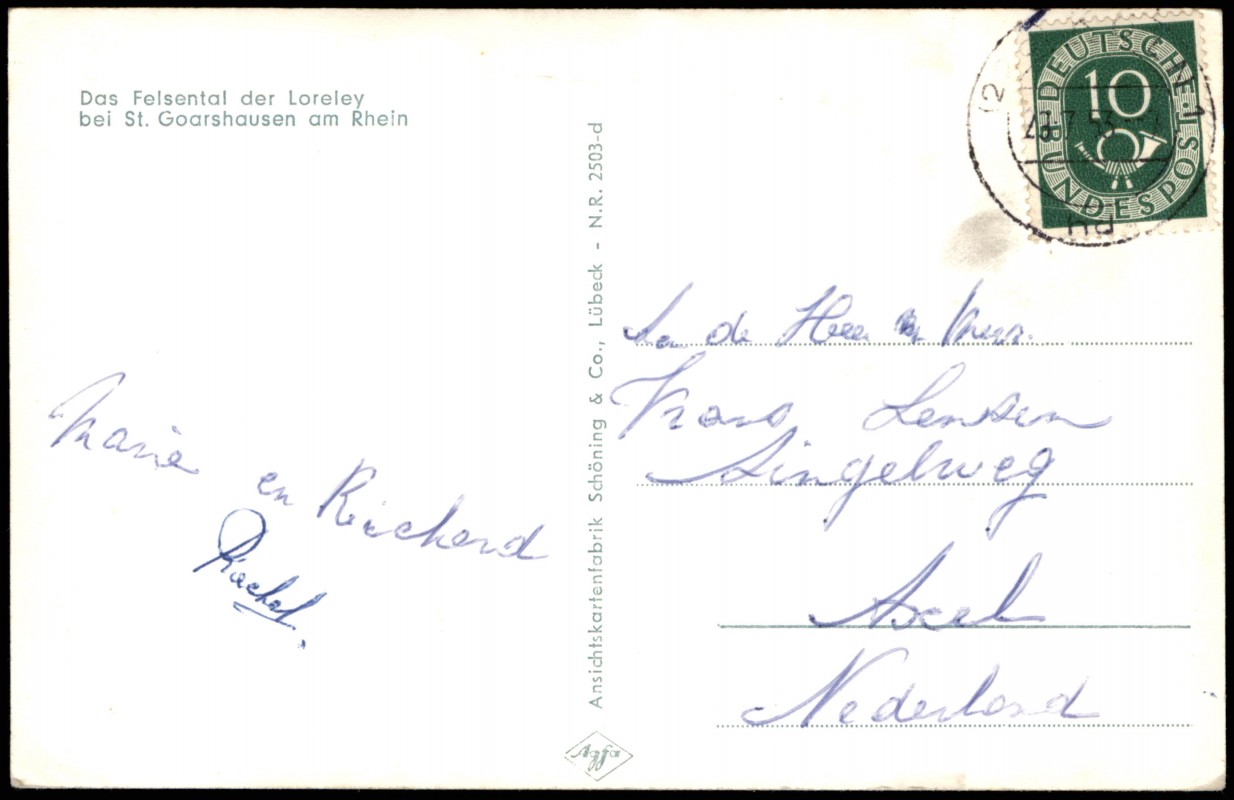 Das Felsental der Loreley
bei St. Goarshausen am Rhein
Marie en Richard
Rachel.
Ansichtskartenfabrik Schöning & Co., Lübeck - N.R. 2503-d
Agfa
DEUTSCHE BUNDESPOST
10
7.53
de Heer Mevr.
Frans Lensen
Singelweg
Axel
Nederland